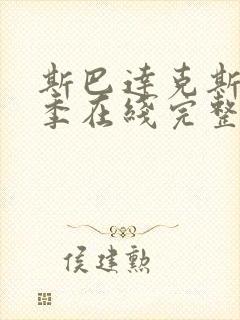 斯巴達克斯
季在綫完整
侯建勲